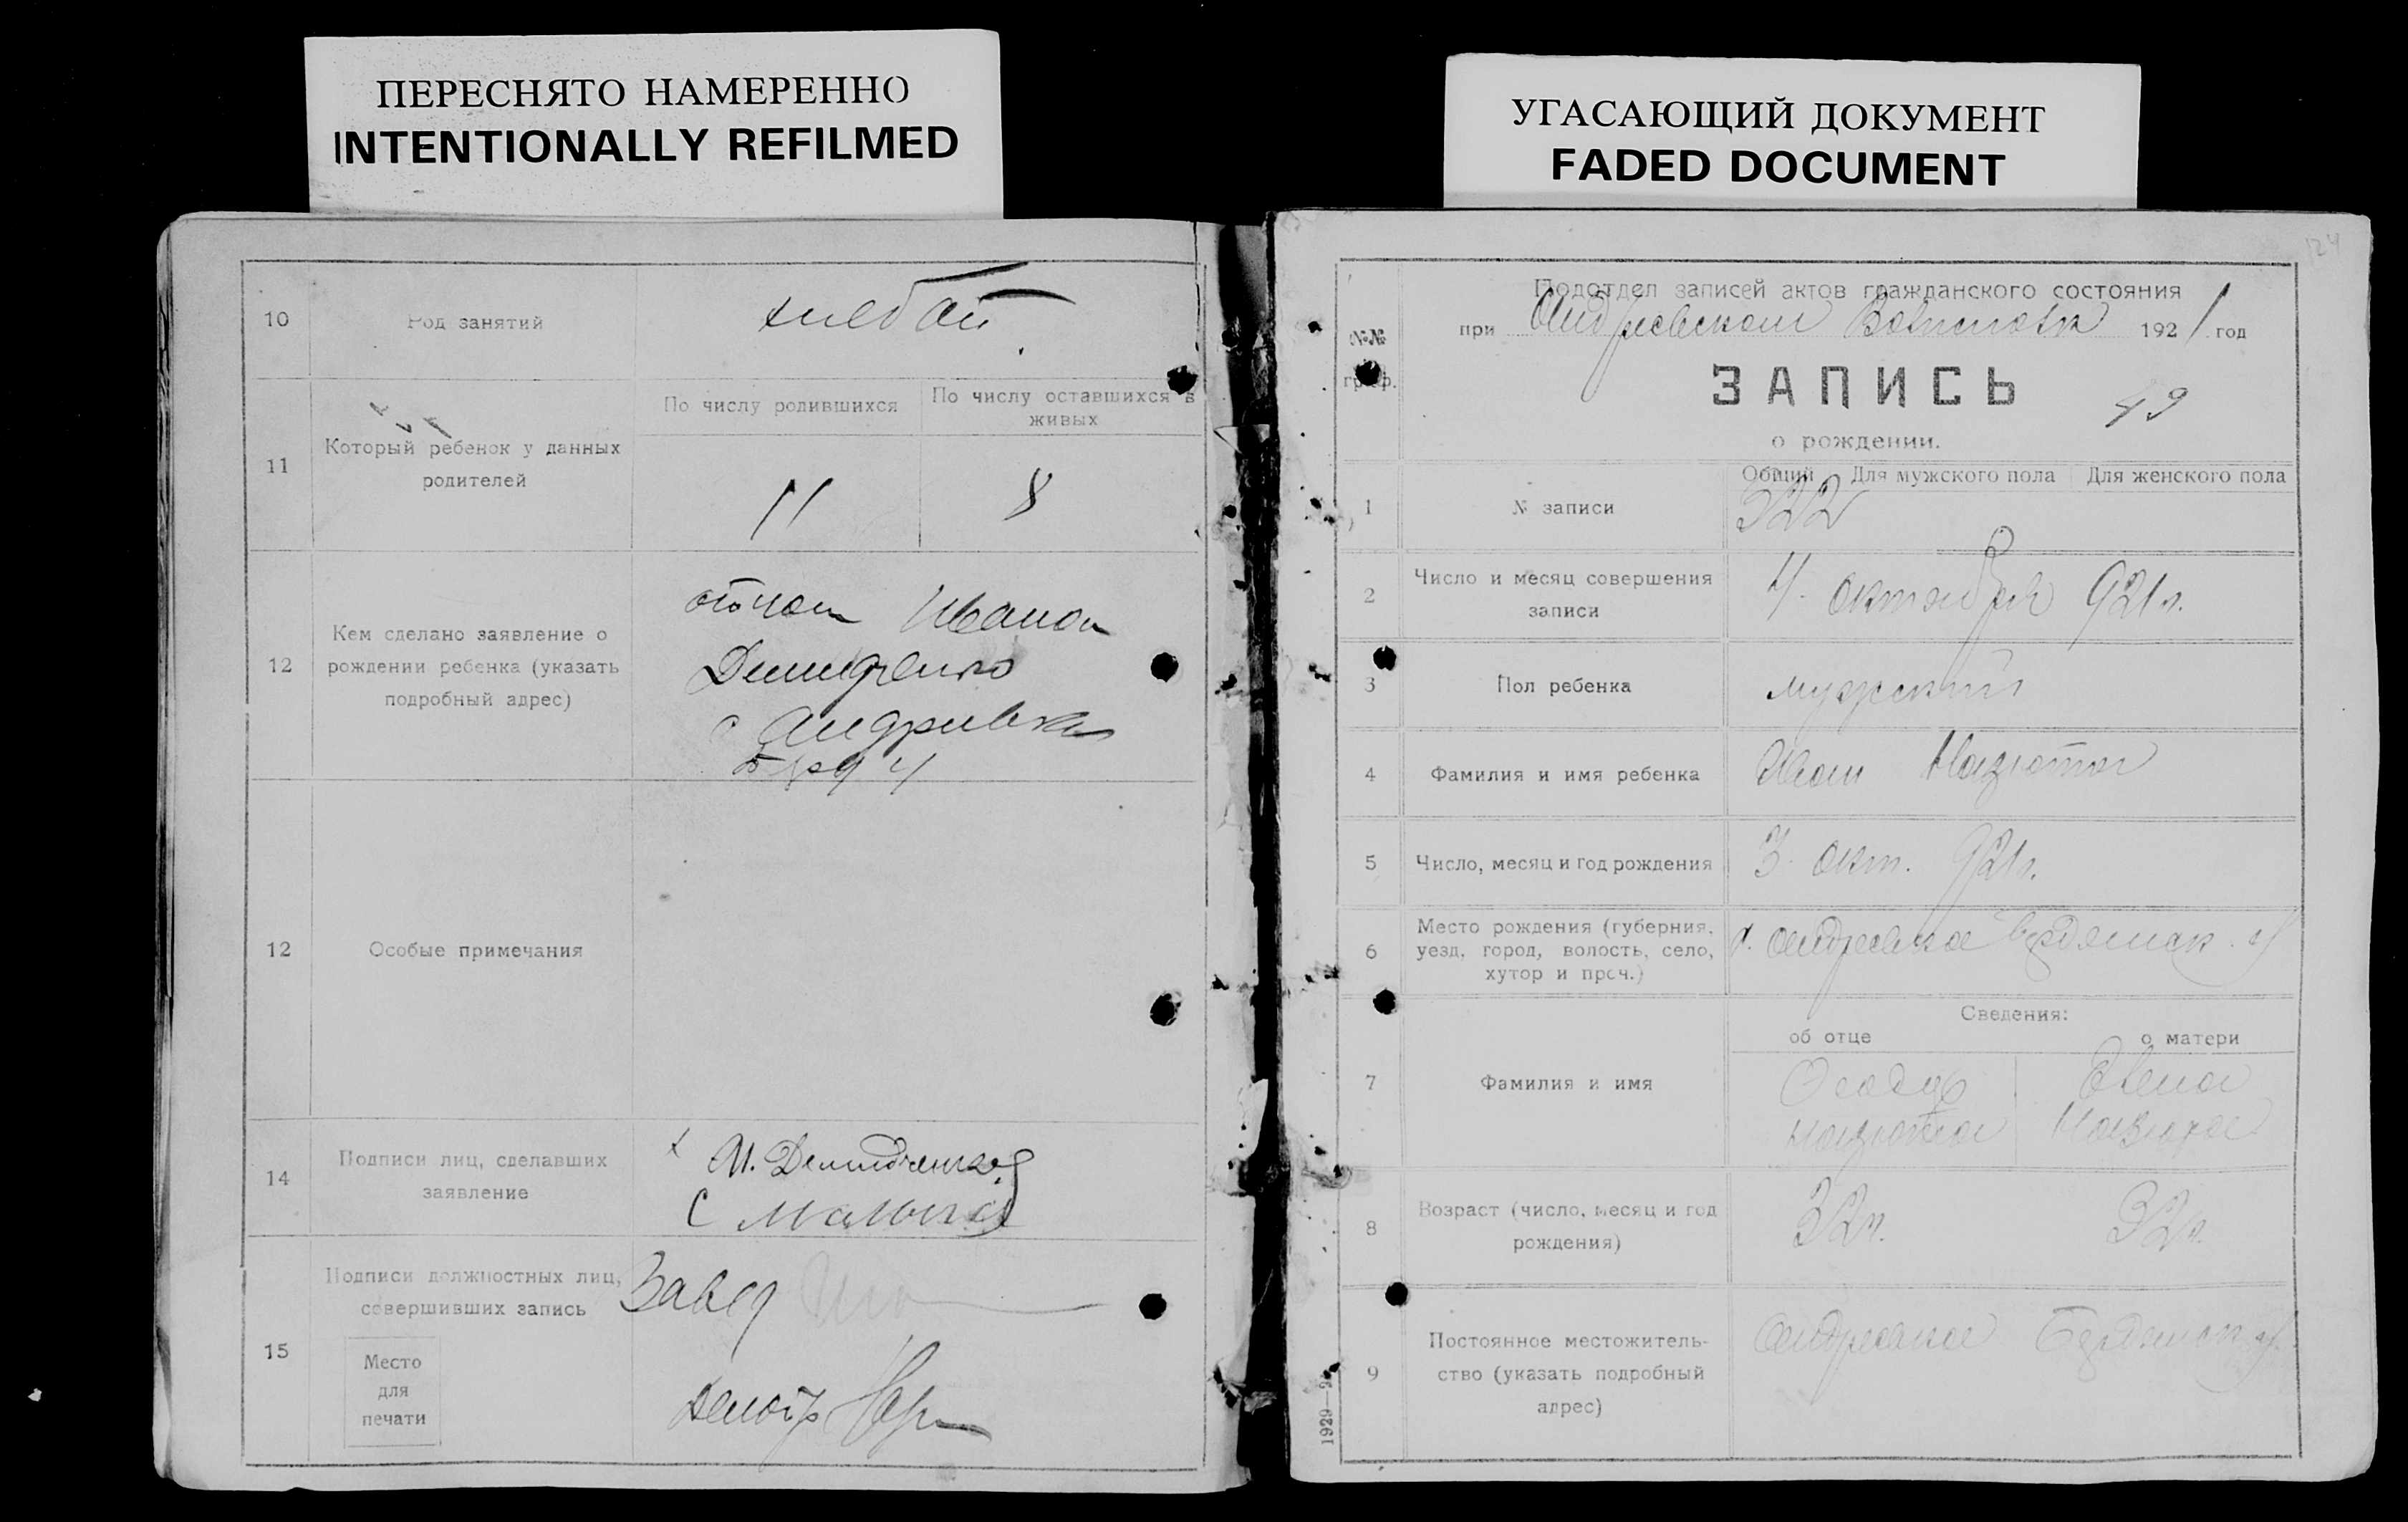 ПЕРЕСНЯТО НАМЕРЕННО
INTENTIONALLY REFILMED
УГАСАЮЩИЙ ДОКУМЕНТ
FADED DOCUMENT
10
Род занятий
11
Который ребенок у данных
родителей
По числу родившихся
По числу оставшихся в
живых
11
8
12
Кем сделано заявление о
рождении ребенка (указать
подробный адрес)
отцом Иваном
Демидченко
с Андриевка
12
Особые примечания
14
Подписи лиц, сделавших
заявление
И. Демидченко
15
Подписи должностных лиц,
совершивших запись
Завед
Место
для
печати
124
№№
граф.
Подотдел записей актов гражданского состояния
при Андреевском 1921 год
ЗАПИСЬ
49
о рождении.
Общий
Для мужского пола
Для женского пола
1
№ записи
322
2
Число и месяц совершения
записи
4. октября 921 г.
3
Пол ребенка
мужской
4
Фамилия и имя ребенка
Иван Назюта
5
Число, месяц и год рождения
3 окт. 921 г.
6
Место рождения (губерния,
уезд, город, волость, село,
хутор и проч.)
с. Андреевка Бердянск. у
Сведения:
об отце
о матери
7
Фамилия и имя
Феодор
Назюта
Елена
Назюта
8
Возраст (число, месяц и год
рождения)
32 г.
32 г.
9
Постоянное местожитель-
ство (указать подробный
адрес)
Андреевка Бердянск у.